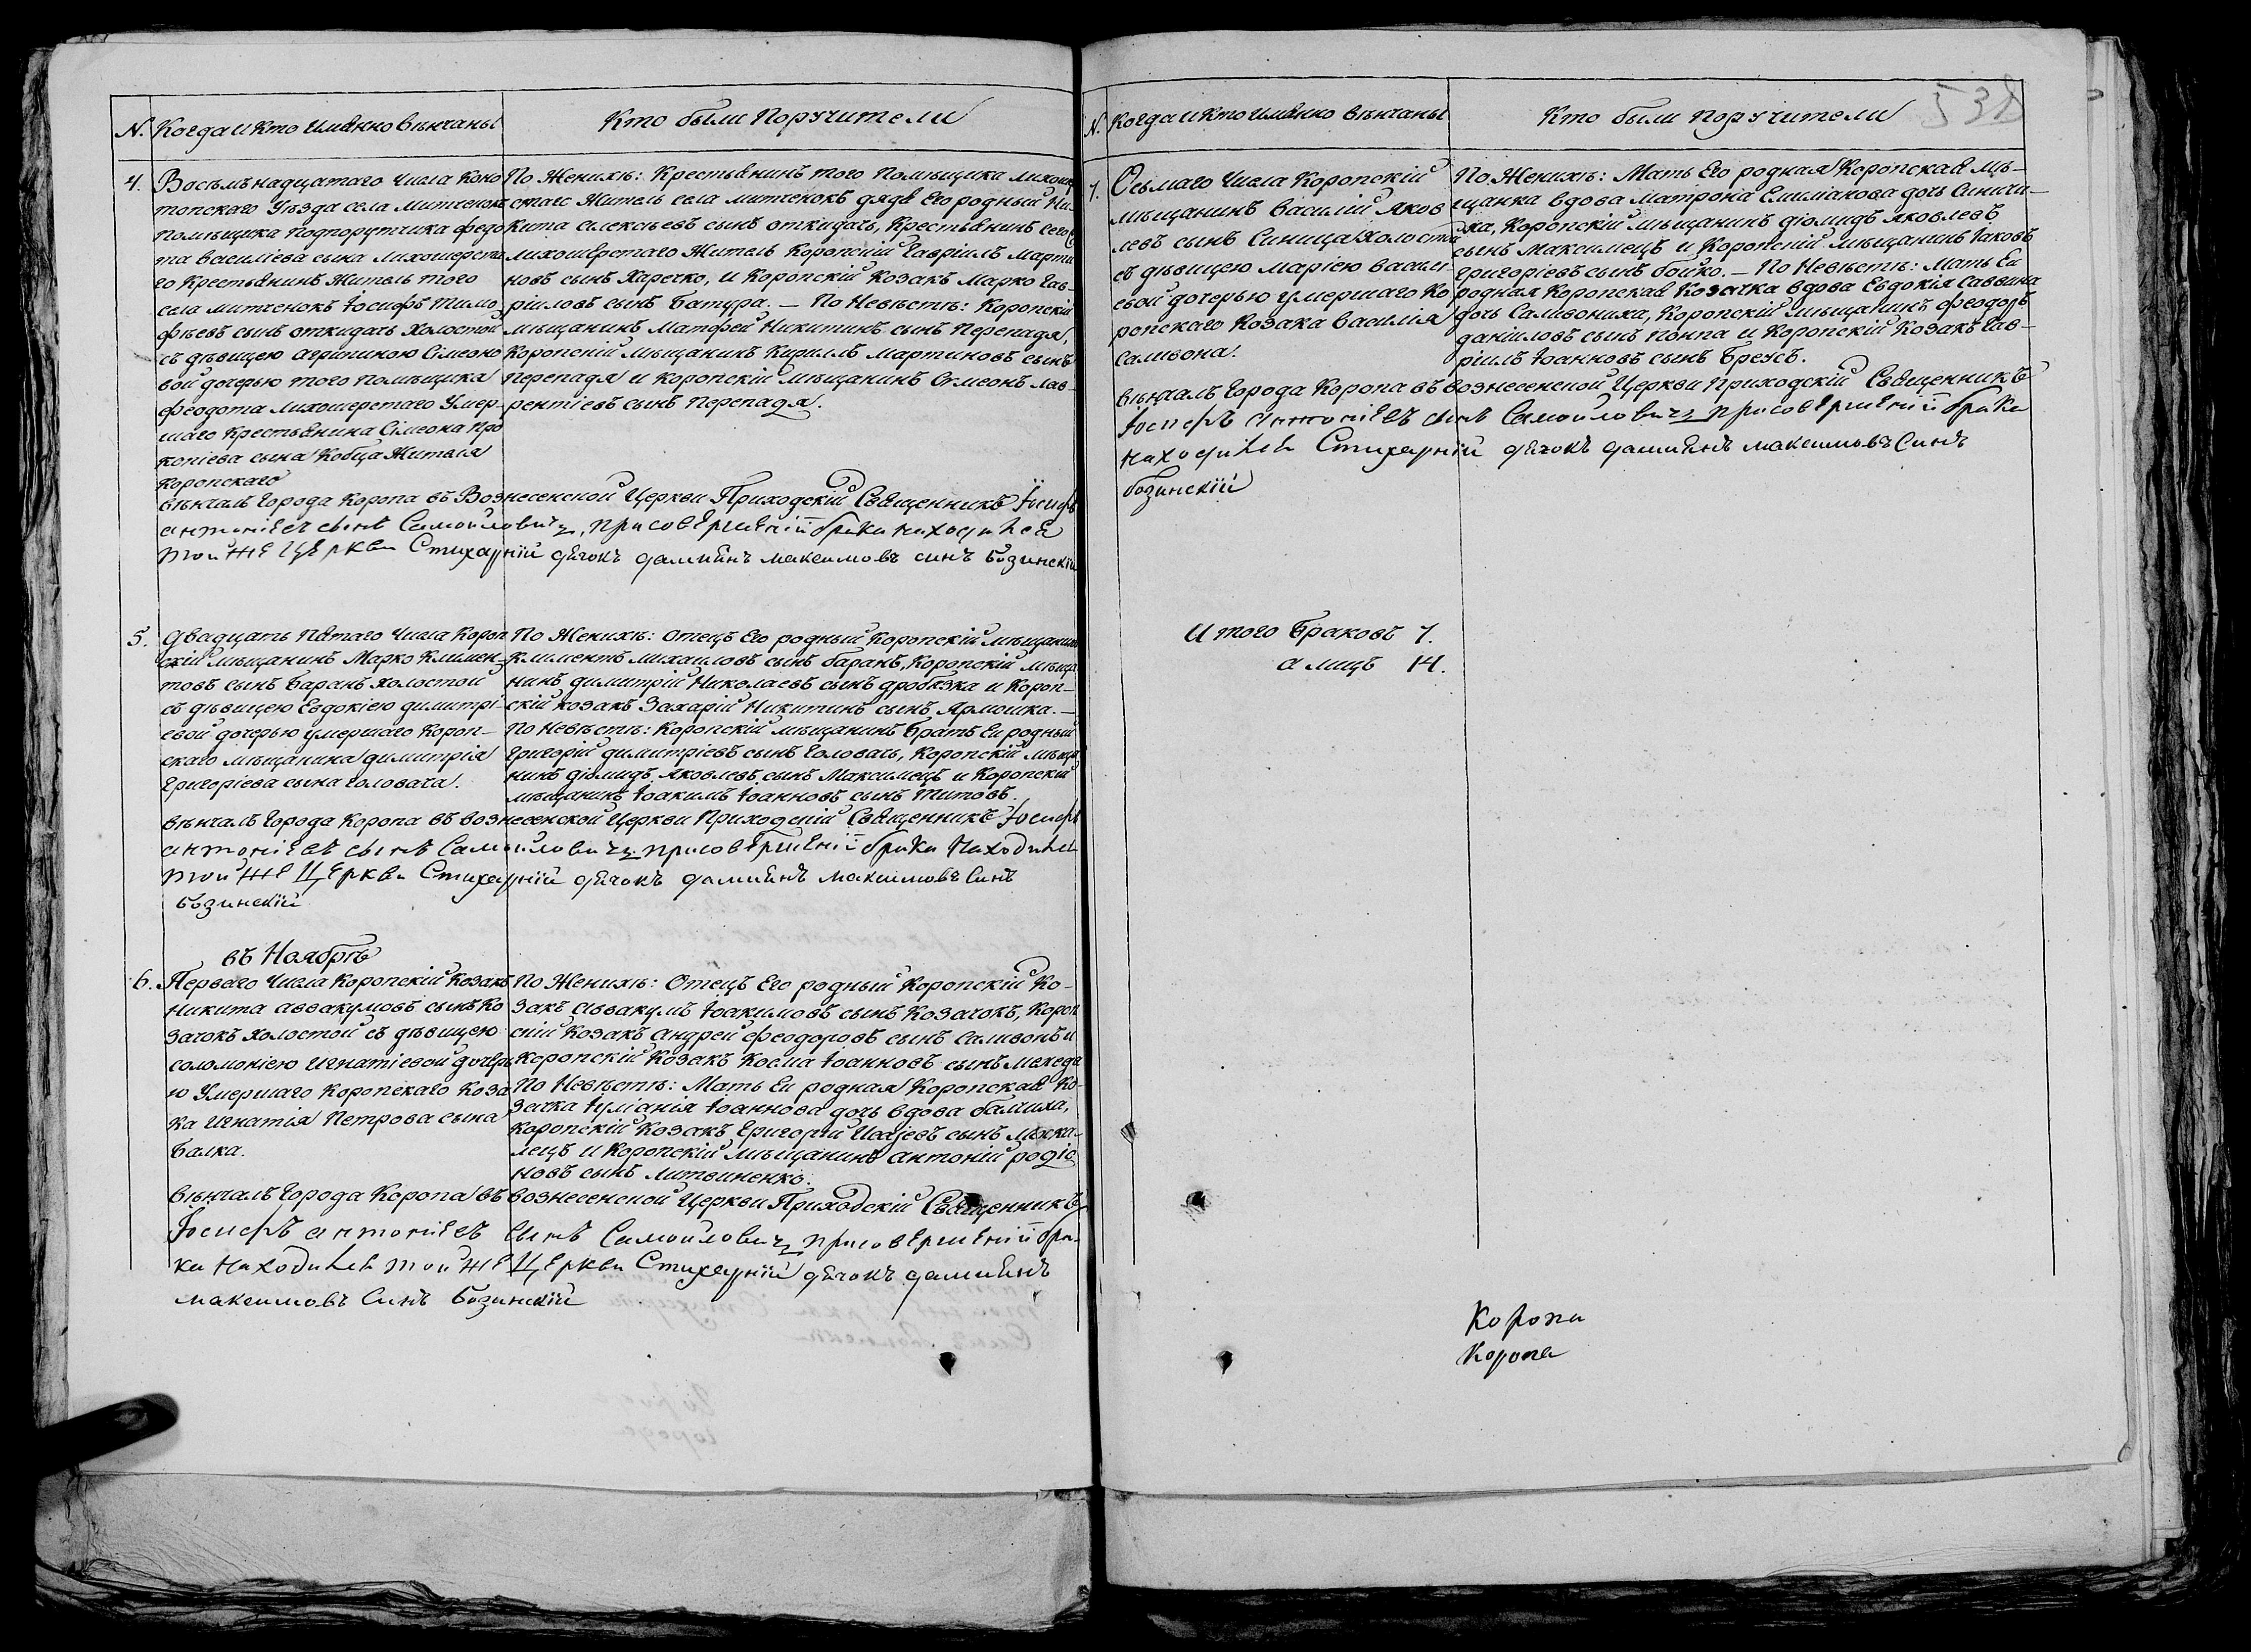 N. Когда и Кто Имѣнно вѣнчаны
Кто были Поручители
4. Восьмънадцатаго Числа Коно
топскаго Уѣзда села Митченокъ
Помѣщика Подпорутчика Федо
та Васильева сына Лихошерста
го Крестьянинъ Житель того
села Митченокъ Іосифъ Тимо
фѣевъ сынъ Откидачъ Холостой
съ дѣвицею Агрипиною Сімеоно
вой дочерью того помѣщика
Феодота Лихошерстаго Умер-
шаго Крестьянина Сімеона Про
копіева сына Кобца Жителя
Коропскаго
По Женихѣ: Крестьянинъ того Помѣщика Лихошер
стаго Житель села Митченокъ дядя Его родный Ни-
кита Алексѣевъ сынъ Откидачъ, Крестьянинъ сего
Лихошерстаго Житель Коропскій Гавріилъ Марти
новъ сынъ Харечко, и Коропскій Козакъ Марко Гав-
ріиловъ сынъ Батура. — По Невѣстѣ: Коропскій
мѣщанинъ Матфей Никитинъ сынъ Перепадя,
Коропскій мѣщанинъ Кириллъ Мартиновъ сынъ
Перепадя и Коропскій мѣщанинъ Симеонъ Лав-
рентіевъ сынъ Перепадя.
вѣнчалъ Города Коропа въ Вознесенской Церкви Приходскій Священникъ Іосифъ
Антоніевъ сынъ Самойловичъ, присовершеніи брака находился
той же Церкви Стихарній дячокъ Даміянъ Максимовъ синъ Бозинскій
5. Двадцать Пятаго Числа Короп
скій мѣщанинъ Марко Климен-
товъ сынъ Баранъ холостой
съ дѣвицею Евдокіею Димитрі-
евой дочерью умершаго Короп-
скаго мѣщанина Димитрія
Григоріева сына Головача.
По Женихѣ: Отецъ Его родный Коропскій мѣщанинъ
Климентъ Михаиловъ сынъ Баранъ, Коропскій мѣща
нинъ Димитрій Николаевъ сынъ Дробязка и Короп-
скій козакъ Захарій Никитинъ сынъ Ярмошка. —
По Невѣстѣ: Коропскій мѣщанинъ Братъ Ея родный
Григорій Димитріевъ сынъ Головачъ, Коропскій мѣща
нинъ Діомидъ Яковлевъ сынъ Максимецъ и Коропскій
мѣщанинъ Іоакимъ Іоанновъ сынъ Титовъ.
вѣнчалъ Города Коропа въ Вознесенской Церкви Приходскій Священникъ Іосифъ
Антоніевъ сынъ Самойловичъ присовершеніи брака находился
той же Церкви Стихарній дячокъ Даміянъ Максимовъ Синъ
Бозинскій
въ Ноябрѣ
6. Перваго Числа Коропскій Козакъ
Никита Аввакумовъ сынъ Ко
зачокъ холостой съ дѣвицею
Соломоніею Игнатіевой дочерь
ю Умершаго Коропскаго Коза
ка Игнатія Петрова сына
Балка.
По Женихѣ: Отецъ Его родный Коропскій Ко-
закъ Аввакумъ Іоакимовъ сынъ Козачокъ, Короп
скій Козакъ Андрей Феодоровъ сынъ Саливонъ и
Коропскій Козакъ Косма Іоанновъ сынъ Мехеда
По Невѣстѣ: Мать Ея родная Коропская Ко-
зачка Іуліанія Іоаннова дочь вдова Балчиха,
Коропскій Козакъ Григорій сынъ
и Коропскій мѣщанинъ Антоній Родіо
новъ сынъ Литвиненко.
вѣнчалъ Города Коропа въ Вознесенской Церкви Приходскій Священникъ
Іосифъ Антоніевъ сынъ Самойловичъ присовершеніи бра-
ка находился той же Церкви Стихарній дячокъ Даміянъ
Максимовъ Синъ Бозинскій
538
N. Когда и Кто Имѣнно вѣнчаны
Кто были Поручители
7. Осьмаго Числа Коропскій
мѣщанинъ Василій Яков
левъ сынъ Синица Холостой
съ дѣвицею Маріею Василі-
евой дочерью умершаго Ко
ропскаго Козака Василія
Саливона.
По Женихѣ: Мать Его родная Коропская мѣ-
щанка вдова Матрона Емиліанова дочь Синичи-
ха, Коропскій мѣщанинъ Діомидъ Яковлевъ
сынъ Максимецъ и Коропскій мѣщанинъ Іаковъ
Григоріевъ сынъ Бойко. — По Невѣстѣ: Мать Ея
родная Коропская Козачка вдова Евдокія Саввина
дочь Саливониха, Коропскій мѣщанинъ Феодоръ
Даніиловъ сынъ Попа и Коропскій Козакъ Гав-
ріилъ Іоанновъ сынъ Бреусъ.
вѣнчалъ Города Коропа въ Вознесенской Церкви Приходскій Священникъ
Іосифъ Антоніевъ сынъ Самойловичъ присовершеніи брака
находился Стихарній дячокъ Даміянъ Максимовъ Синъ
Бозинскій
Итого Браковъ 7.
а лицъ 14.
Коропа
Коропа